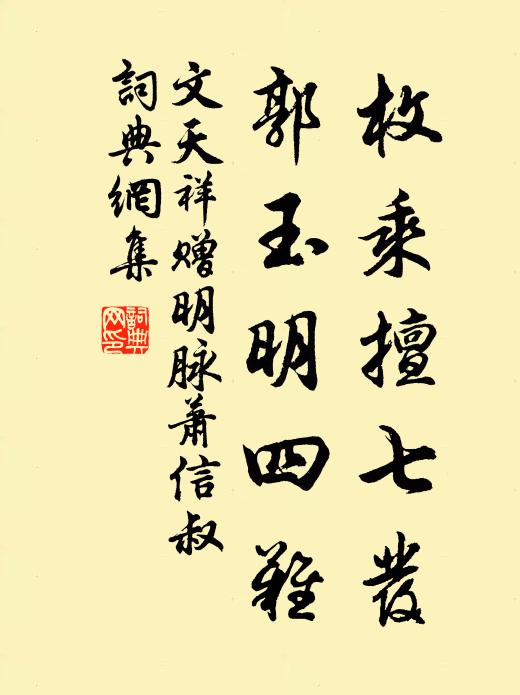 枚乘擅七發
郭玉明四難
文天祥贈明脉蕭信叔
詞典網集
詞典
网印